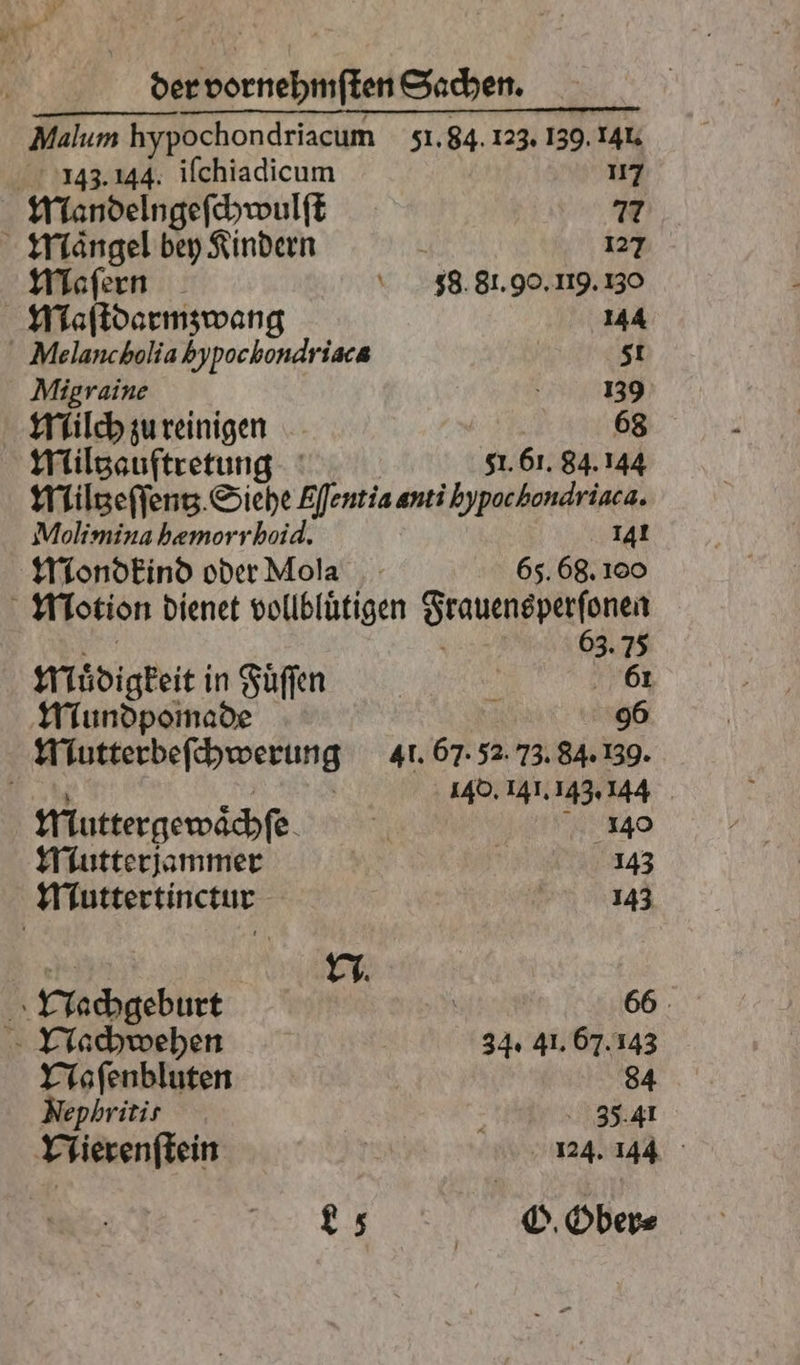 der vornehmſten Sachen.
Malum hypochondriacum 51. 84. 123. 139. 141.
143. 144. iſchiadicum 117
Mandelngeſchwulſt 77
Maͤngel bey Kindern 127
Maſern 58. 81. 90. 119. 130
Maſtdarmzwang 144
Melancholia hypochondriaca 51
Migraine 139
Milch zu reinigen 68
Miltzauftretung 51. 61. 84. 144
Miltzeſſentz. Siehe Eſſentia anti hypochondriaca.
Molimina hæmorrhoid. 141
Mondkind oder Mola 65. 68. 100
Motion dienet vollbluͤtigen Frauensperſonen
63. 75
Muͤdigkeit in Fuͤſſen 61
Mundpomade 96
Mutterbeſchwerung 41. 67. 52. 73. 84. 139.
140. 141. 143. 144
Muttergewaͤchſe 140
Mutterjammer 143
Muttertinctur 143
N.
Nachgeburt 66
Nachwehen 34. 41. 67. 143
Naſenbluten 84
Nephritis 35. 41
Nierenſtein 124. 144
L 5 O. Ober⸗